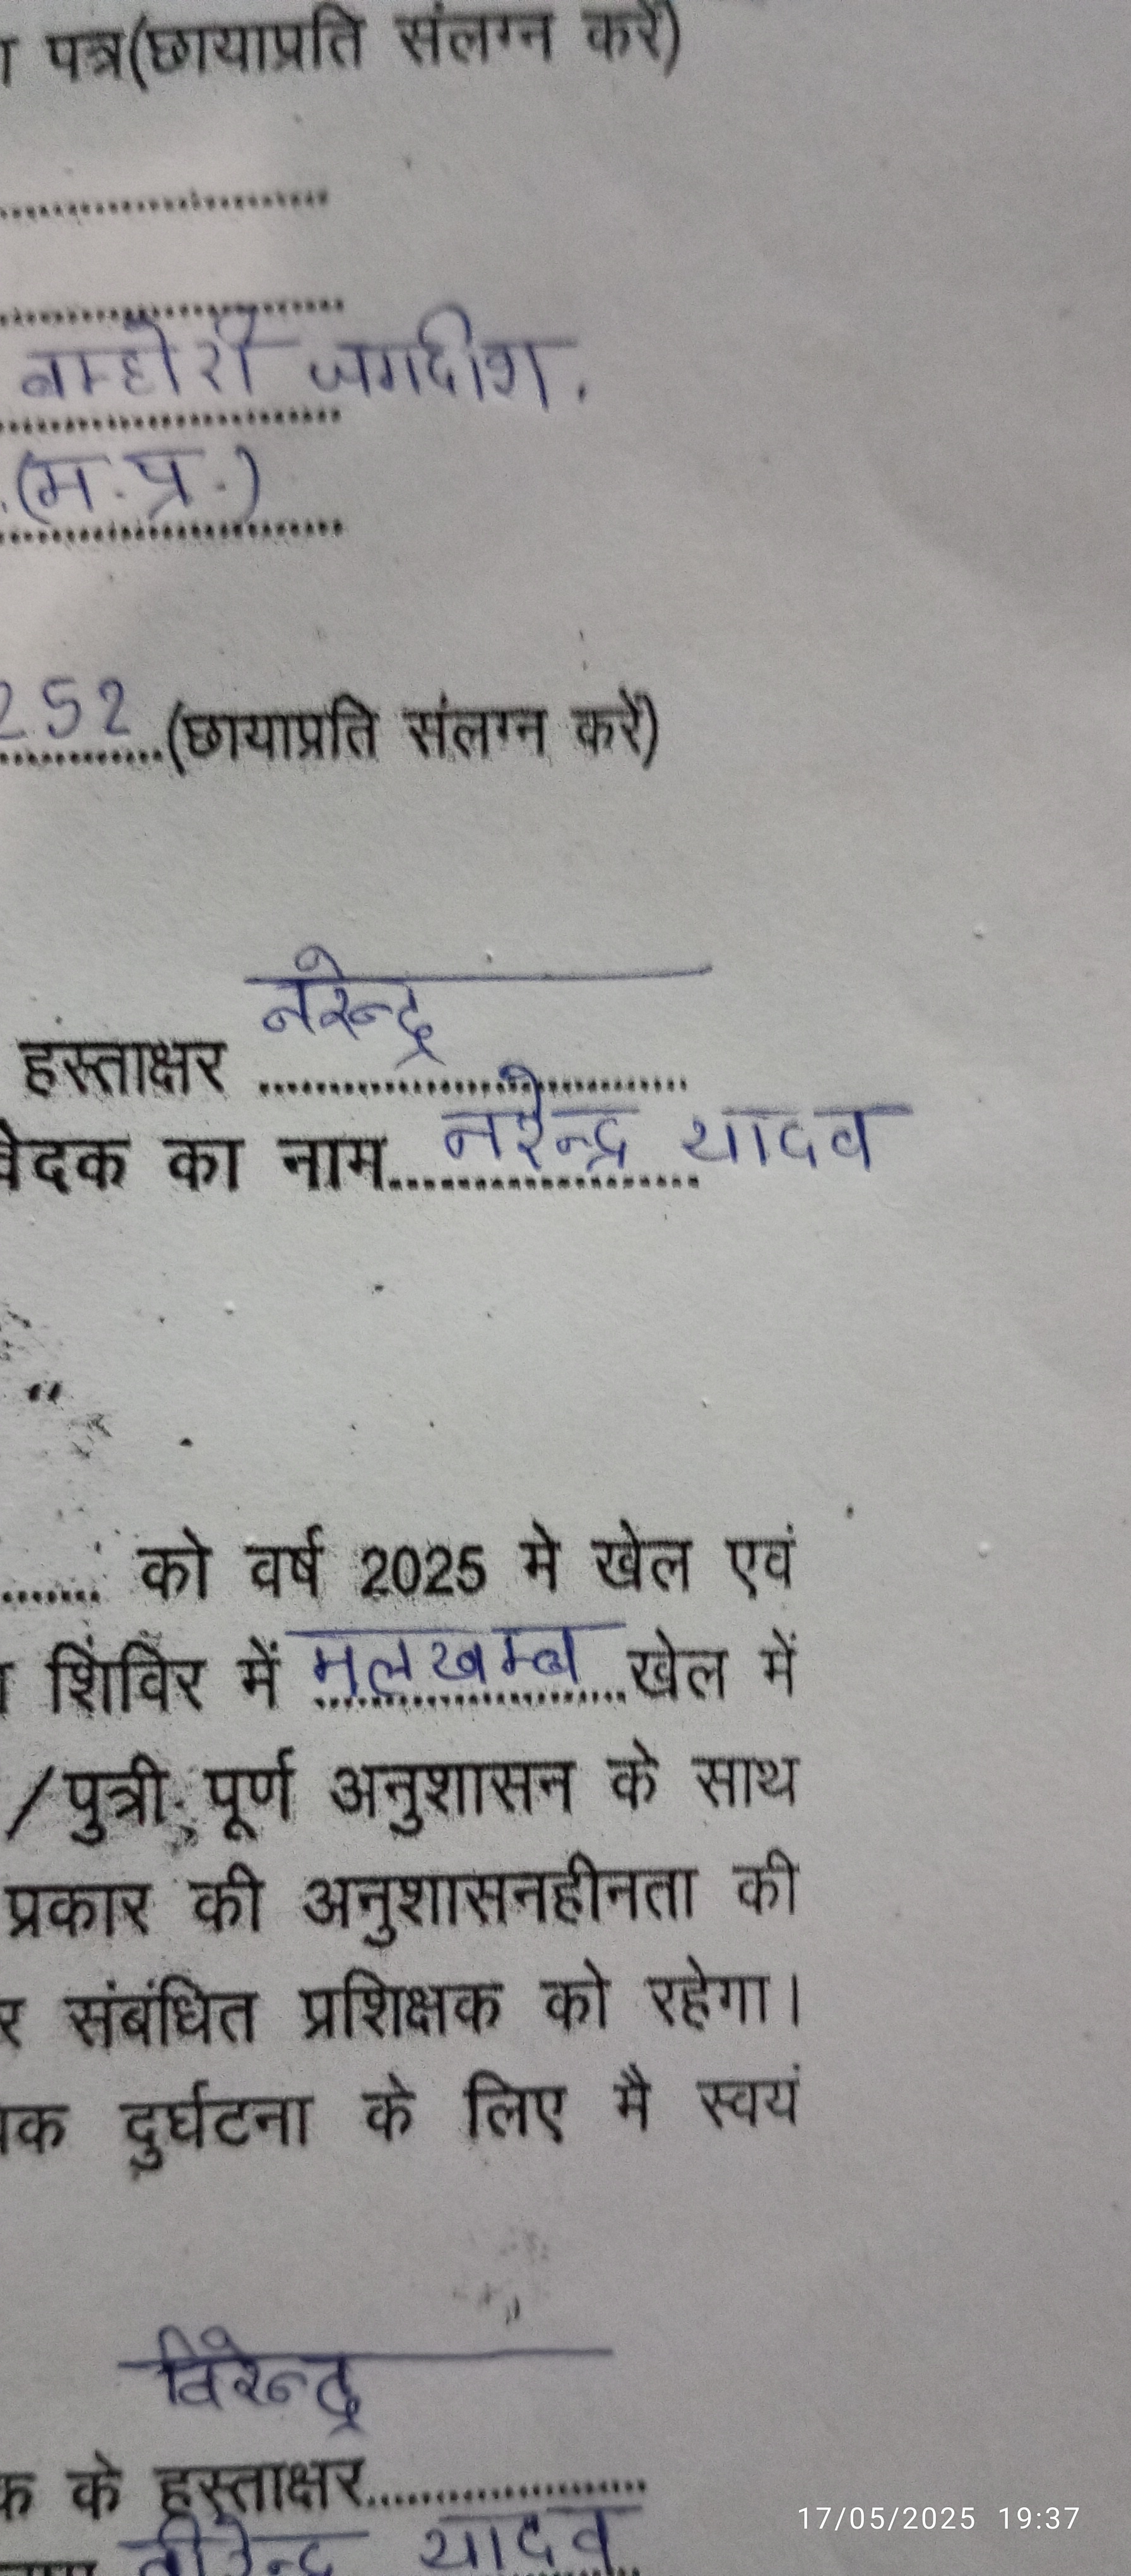 पत्र(छायाप्रति संलग्न करें)
बम्होरी जगदीश.
(म.प्र.)
252 (छायाप्रति संलग्न करें)
नरेन्द्र
हस्ताक्षर ..............................
का नाम.... नरेन्द्र यादव
"
........ को वर्ष 2025 मे खेल एवं
शिंविर में मलखम्ब खेल में
/पुत्री पूर्ण अनुशासन के साथ
प्रकार की अनुशासनहीनता की
संबंधित प्रशिक्षक को रहेगा।
दुर्घटना के लिए मै स्वयं
विरेन्द्र
के हस्ताक्षर..............................
यादव
17/05/2025 19:37